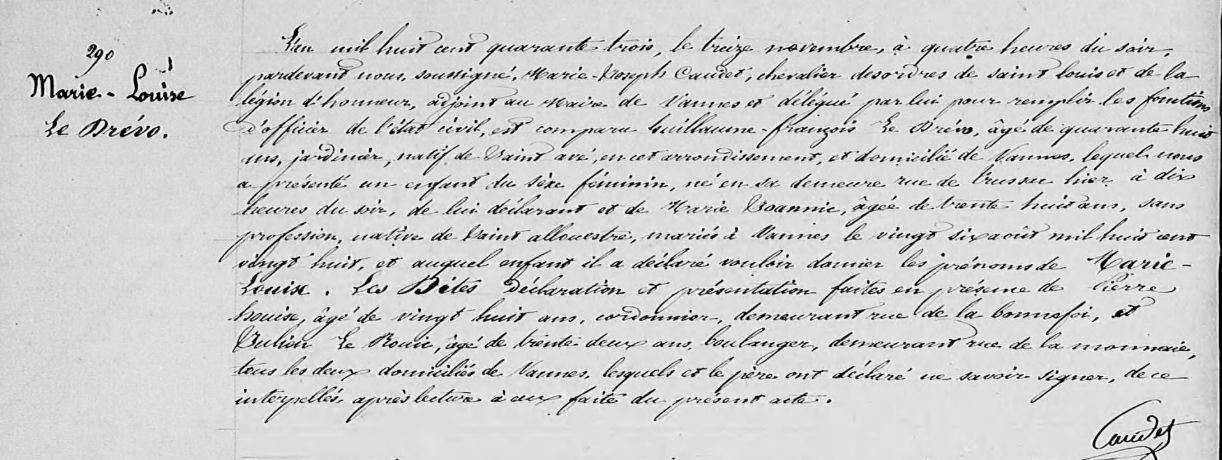 290
Marie-Louise
Le Drévo.
L'an mil huit cent quarante trois, le treize novembre, à quatre heures du soir,
pardevant nous, soussigné, Marie-Joseph Caudet, chevalier des ordres de saint louis et de la
légion d'honneur, adjoint au Maire de Vannes et délégué par lui pour remplir les fonctions
d'officier de l'état civil, est comparu Guillaume-françois Le Drévo, âgé de quarante huit
ans, jardinier, natif de Saint avé, en cet arrondissement, et domicilié de Vannes, lequel nous
a présenté un enfant du sèxe féminin, né en sa demeure rue de hier à dix
heures du soir, de lui déclarant et de Marie Joannic, âgée de trente huit ans, sans
profession, native de Saint allouestre, mariés à Vannes le vingt six août mil huit cent
vingt huit, et auquel enfant il a déclaré vouloir donner les prénoms de Marie-
Louise. Les Dites déclaration et présentation faites en présence de Pierre
âgé de vingt huit ans, cordonnier, demeurant rue de la bonnefoi, et
Julien Le Rouic, âgé de trente deux ans, boulanger, demeurant rue de la monnaie,
tous les deux domiciliés de Vannes, lesquels et le père ont déclaré ne savoir signer, de ce
interpellés après lecture à eux faite du présent acte.
Caudet